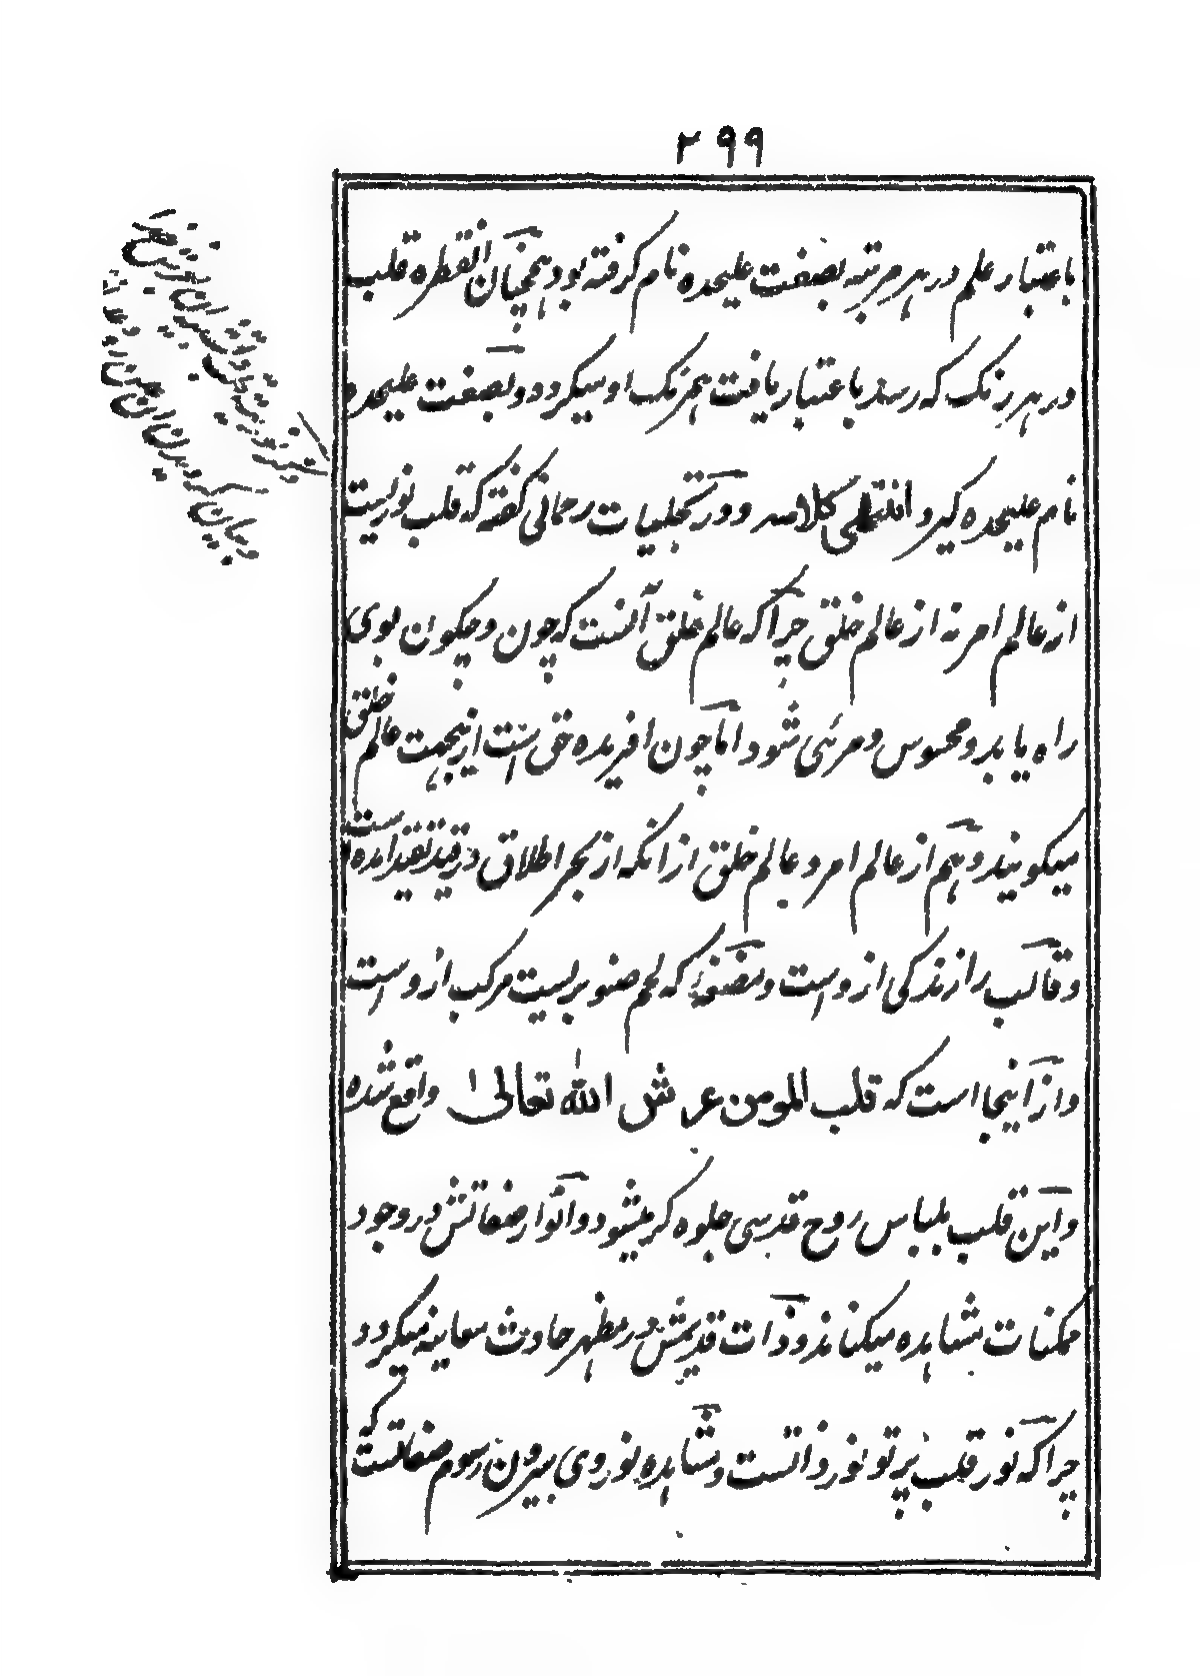 ۲۹۹
باعتبار علم در هر مرتبه بصفت علیحده نام گرفته بود همچنان انقطره قلب
در هر رنگ که رسد باعتبار یافت همرنگ او میکردد و بصفت علیحده
نام علیحده گیرد انتهی کلامه و در تجلیات رحمانی گفته که قلب نوریست
از عالم امر نه از عالم خلق چرا که عالم خلق آنست که چون و چکون بوی
راه یابد و محسوس و مرئی شود اما چون افریده حق است ازینجهت عالم خلق
میگویند و هم از عالم امر و عالم خلق ازانکه از بحر اطلاق در قید تقید امده است
و قالب را زندگی ازوست و مضغه که لحم صنوبریست مرکب ازوست
و از اینجا است که قلب المومن عرش الله تعالی واقع شده
و این قلب بلباس روح قدسی جلوه گر میشود و انوار صفاتش در وجود
ممکنات مشاهده میکناند و ذات قدیمش در مظهر حادث معاینه میگردد
چرا که نور قلب پرتو نور ذاتست و مشاهده نور وی بیرون رسوم صفاتست که